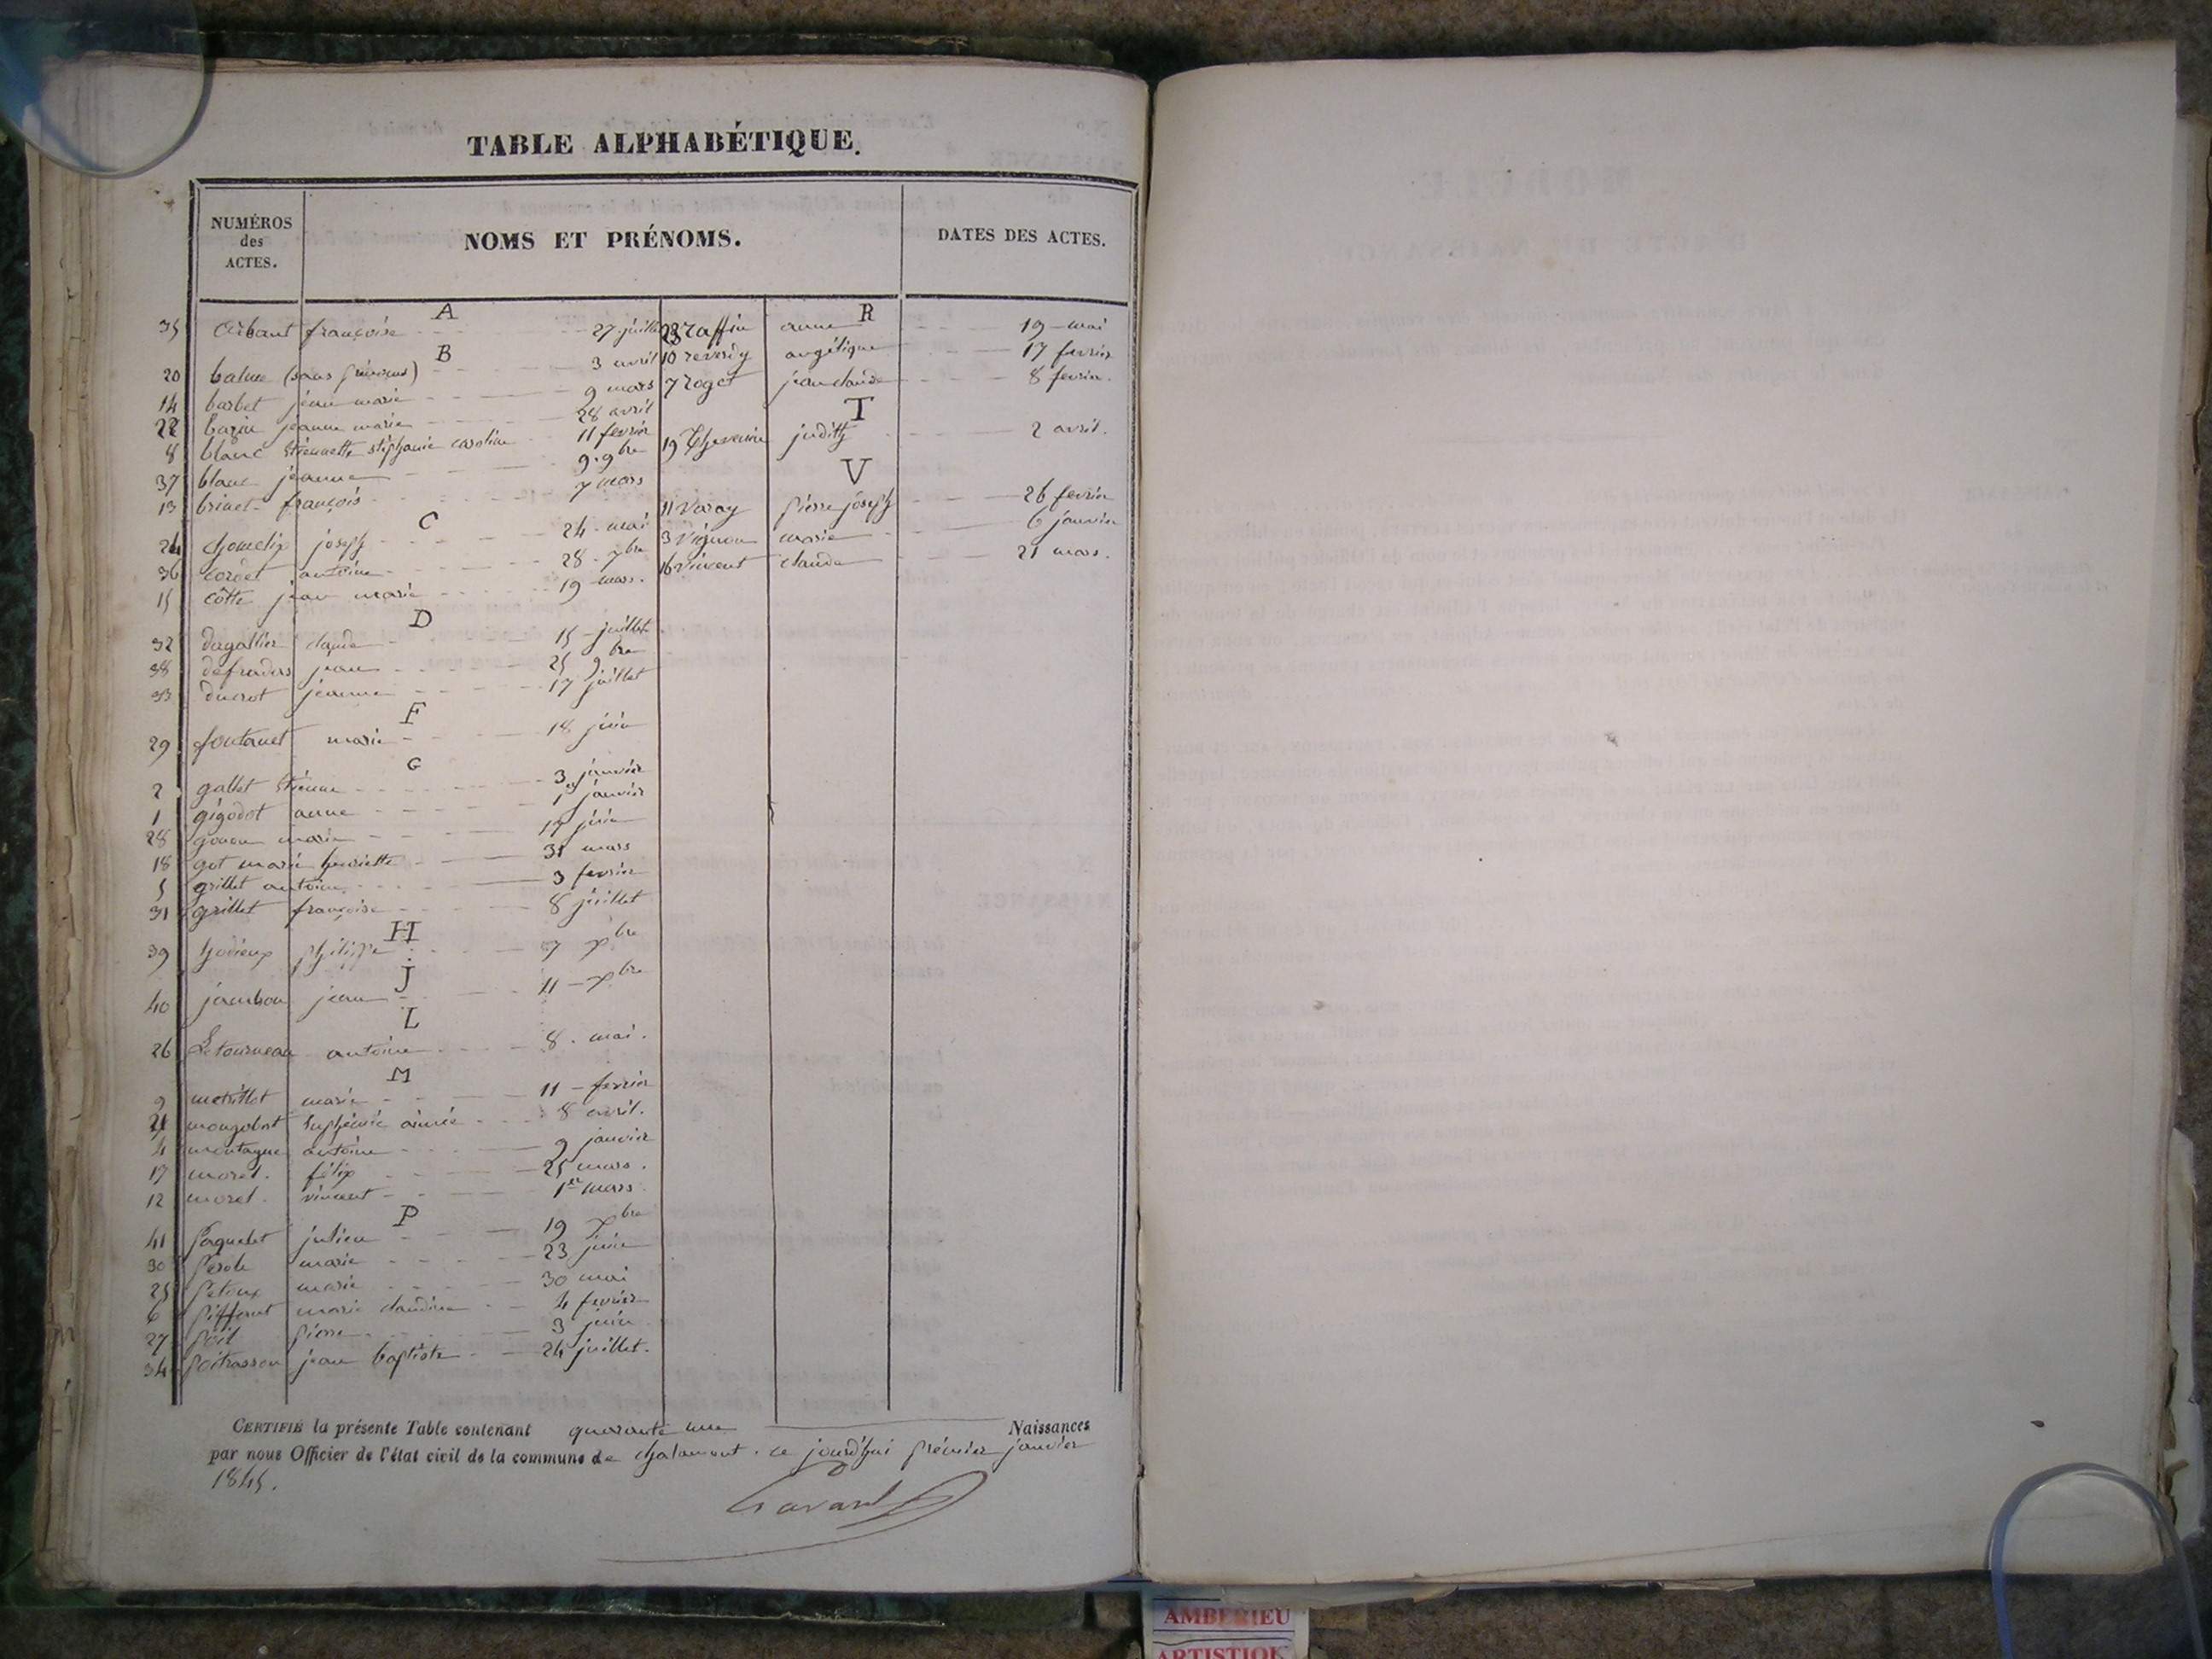 TABLE ALPHABÉTIQUE.
NUMÉROS
des
ACTES.
NOMS ET PRÉNOMS.
DATES DES ACTES.
A
35 arbant françoise 27 juillet
B
20 balme (sans prénoms) 3 avril
14 barbet jean marie 9 mars
22 bazin jeanne marie 28 avril
8 blanc étiennette stéphanie caroline 11 fevrier
37 blanc jeanne 9. 9bre
13 brinet françois 7 mars
C
24 chomelix joseph 24 mai
36 cordet antoine 28. 7bre
15 côtte jean marie 19 mars.
D
32 dagallier claude 15 juillet
38 defradas jean 25 9bre
33 ducrot jeanne 17 juillet
F
29 fontanet marie 18 juin
G
2 gallet étienne 3 janvier
1 gigodot anne 1er janvier
28 gonon marie 17 juin
18 got marie henriette 31 mars
5 grillet antoine 3 fevrier
31 grillet françoise 8 juillet
H
39 hodieux philippe 7 xbre
J
40 jambon jean 11 xbre
L
26 Letourneau antoine 8. mai.
M
9 metrillot marie 11 fevrier
21 mongobert euphémie aimée 8 avril.
4 montagne antoine 9 janvier
17 morel. félix 25 mars.
12 morel. vincent 1er mars.
P
41 paquelet julien 19 xbre
30 pérole marie 23 juin
25 petoux marie 30 mai
6 pifferut marie claudine 4 fevrier
27 poil pierre 3 juin
34 poitrasson jean baptiste 24 juillet.
R
23 raffin anne 19 mai
10 reverdy angélique 17 fevrier
7 roget jean claude 8 fevrier.
T
19 Thevenin judith 2 avril.
V
11 varay pierre joseph 26 fevrier
3 vignon marie 6 janvier
16 vincent claude 21 mars.
CERTIFIÉ la présente Table contenant quarante une Naissances
par nous Officier de l'état civil de la commune de chalamont. ce jourd'hui prémier janvier
1845.
AMBERIEU
ARTISTIQU